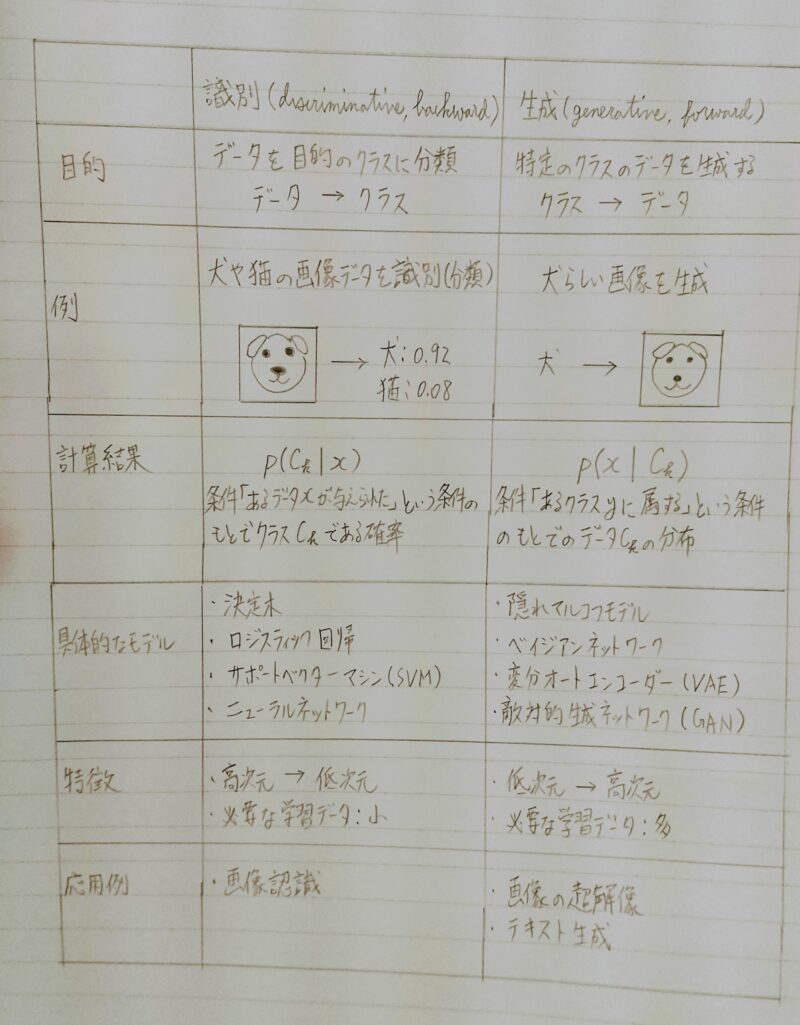 識別(discriminative, backward) 生成(generative, forward)
目的
データを目的のクラスに分類
データ → クラス
特定のクラスのデータを生成する
クラス → データ
例
犬や猫の画像データを識別(分類)
→ 犬:0.92
猫:0.08
犬らしい画像を生成
犬 →
計算結果
p(Ck|x)
条件「あるデータxが与えられた」という条件の
もとでクラスCkである確率
p(x|Ck)
条件「あるクラスyに属する」という条件
のもとでのデータCkの分布
具体的なモデル
・決定木
・ロジスティック回帰
・サポートベクターマシン(SVM)
・ニューラルネットワーク
・隠れマルコフモデル
・ベイジアンネットワーク
・変分オートエンコーダー(VAE)
・敵対的生成ネットワーク(GAN)
特徴
・高次元 → 低次元
・必要な学習データ:小
・低次元 → 高次元
・必要な学習データ:多
応用例
・画像認識
・画像の超解像
・テキスト生成